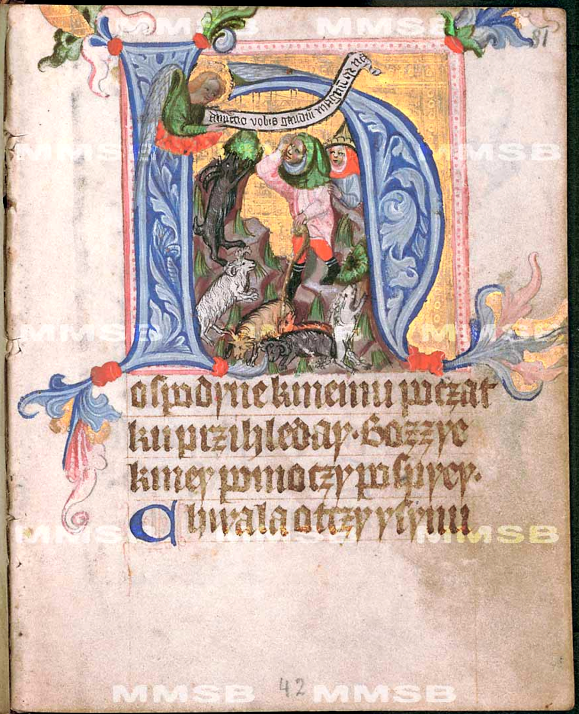 MMSB MMSB
81
vobis
MMSB MMSB MMSB
MMSB MMSB MMSB
Hospodyne kmemu poczat
ku przihleday · Bozzye
kmey pomoczy pospyey ·
Chwala otczy ysynu
MMSB MMSB MMSB
42
MMSB MMSB